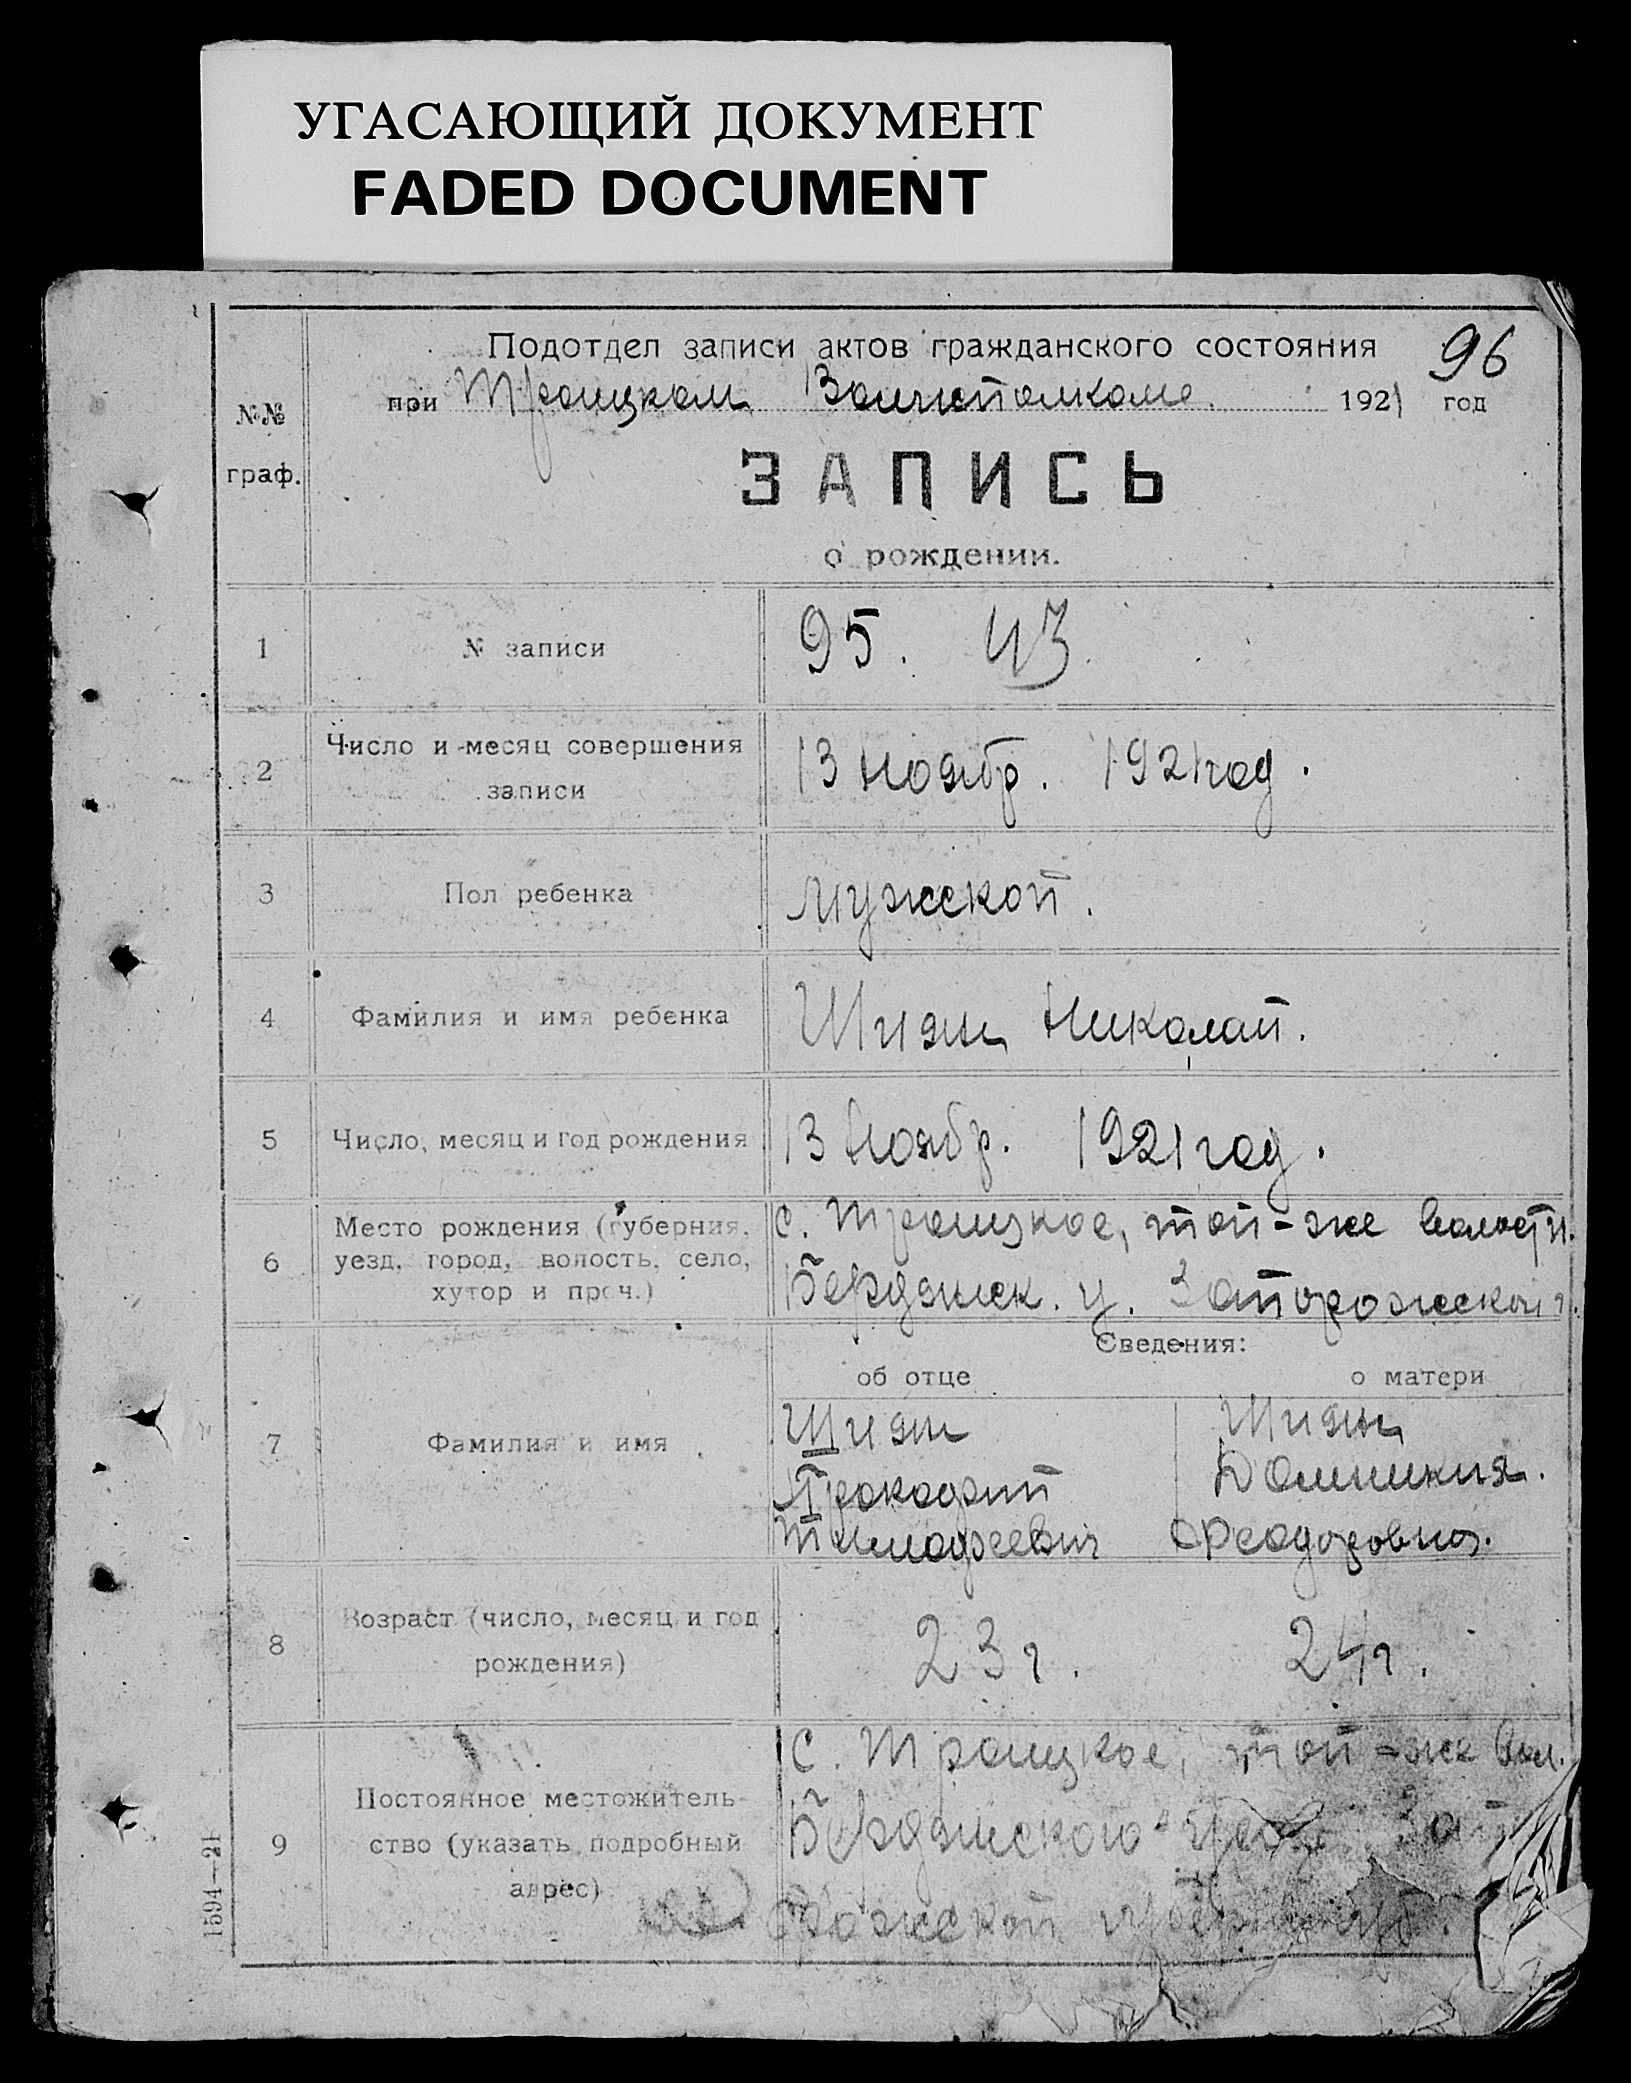 УГАСАЮЩИЙ ДОКУМЕНТ
FADED DOCUMENT
Подотдел записи актов гражданского состояния
96
при Троицком Волисполкоме. 1921 год
№№
граф.
ЗАПИСЬ
о рождении.
1 № записи 95. 43
2 Число и месяц совершения
записи
13 Ноябр. 1921 год.
3 Пол ребенка Мужской.
4 Фамилия и имя ребенка Шиян Николай.
5 Число, месяц и год рождения 13 Ноябр. 1921 год.
6 Место рождения (губерния,
уезд, город, волость, село,
хутор и проч.)
с. Троицкое, той-же волости.
Бердянск. у. Запорожской г.
Сведения:
об отце о матери
7 Фамилия и имя
Шиян Шиян
Прокофий Домникия.
Тимофеевич Феодоровна.
8 Возраст (число, месяц и год
рождения)
23 г. 24 г.
9 Постоянное местожитель-
ство (указать подробный
адрес)
с. Троицкое, той-же вол.
Бердянского Запо
рожской губернии.
1594—21